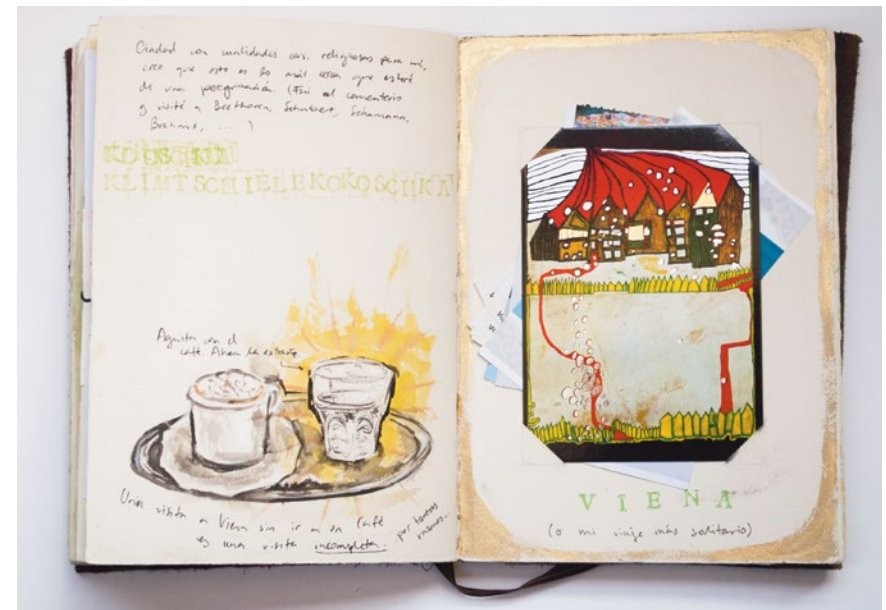 Ciudad con cualidades casi religiosas para mí,
creo que esto es lo más cerca que estaré
de una peregrinación. (Fui al cementerio
y visité a Beethoven, Schubert, Schumann,
Brahms, .... )
KLIMTSCHIELEKOKOSCHKA
Agüita con el
café. Ahora la extraño.
Una visita a Viena sin ir a un Café
es una visita incompleta. por tantas
razones.
VIENA
(o mi viaje más solitario)